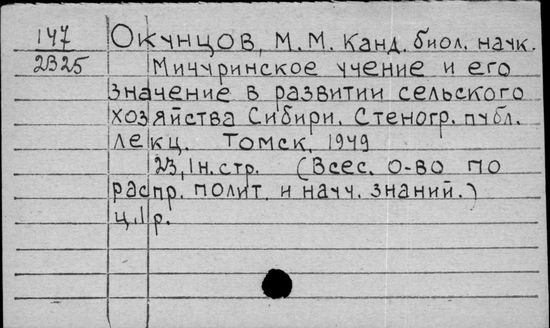 147 Окунцов, М.М. Канд. биол. наук.
2В25 Мичуринское учение и его
значение в развитии сельского
хозяйства Сибири. Стеногр. публ.
лекц. Томск, 1949
23,1н.стр. (Всес. о-во по
распр. полит. и науч. знаний.)
ц.1р.